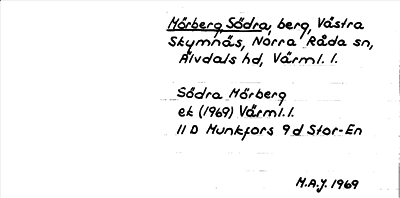 Mörberg, Södra, berg, Västra
Skymnäs, Norra Råda sn,
Älvdals hd, Värml. l.
Södra Mörberg
ek (1969) Värml. l.
11 D Munkfors 9 d Stor-En
M.A.J. 1969